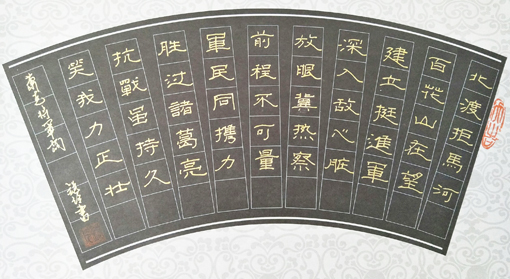 北渡拒馬河
百花山在望
建立挺進軍
深入敌心脏
放眼冀热察
前程不可量
軍民同携力
胜过諸葛亮
抗戰虽持久
笑我力正壮
萧克将軍
書